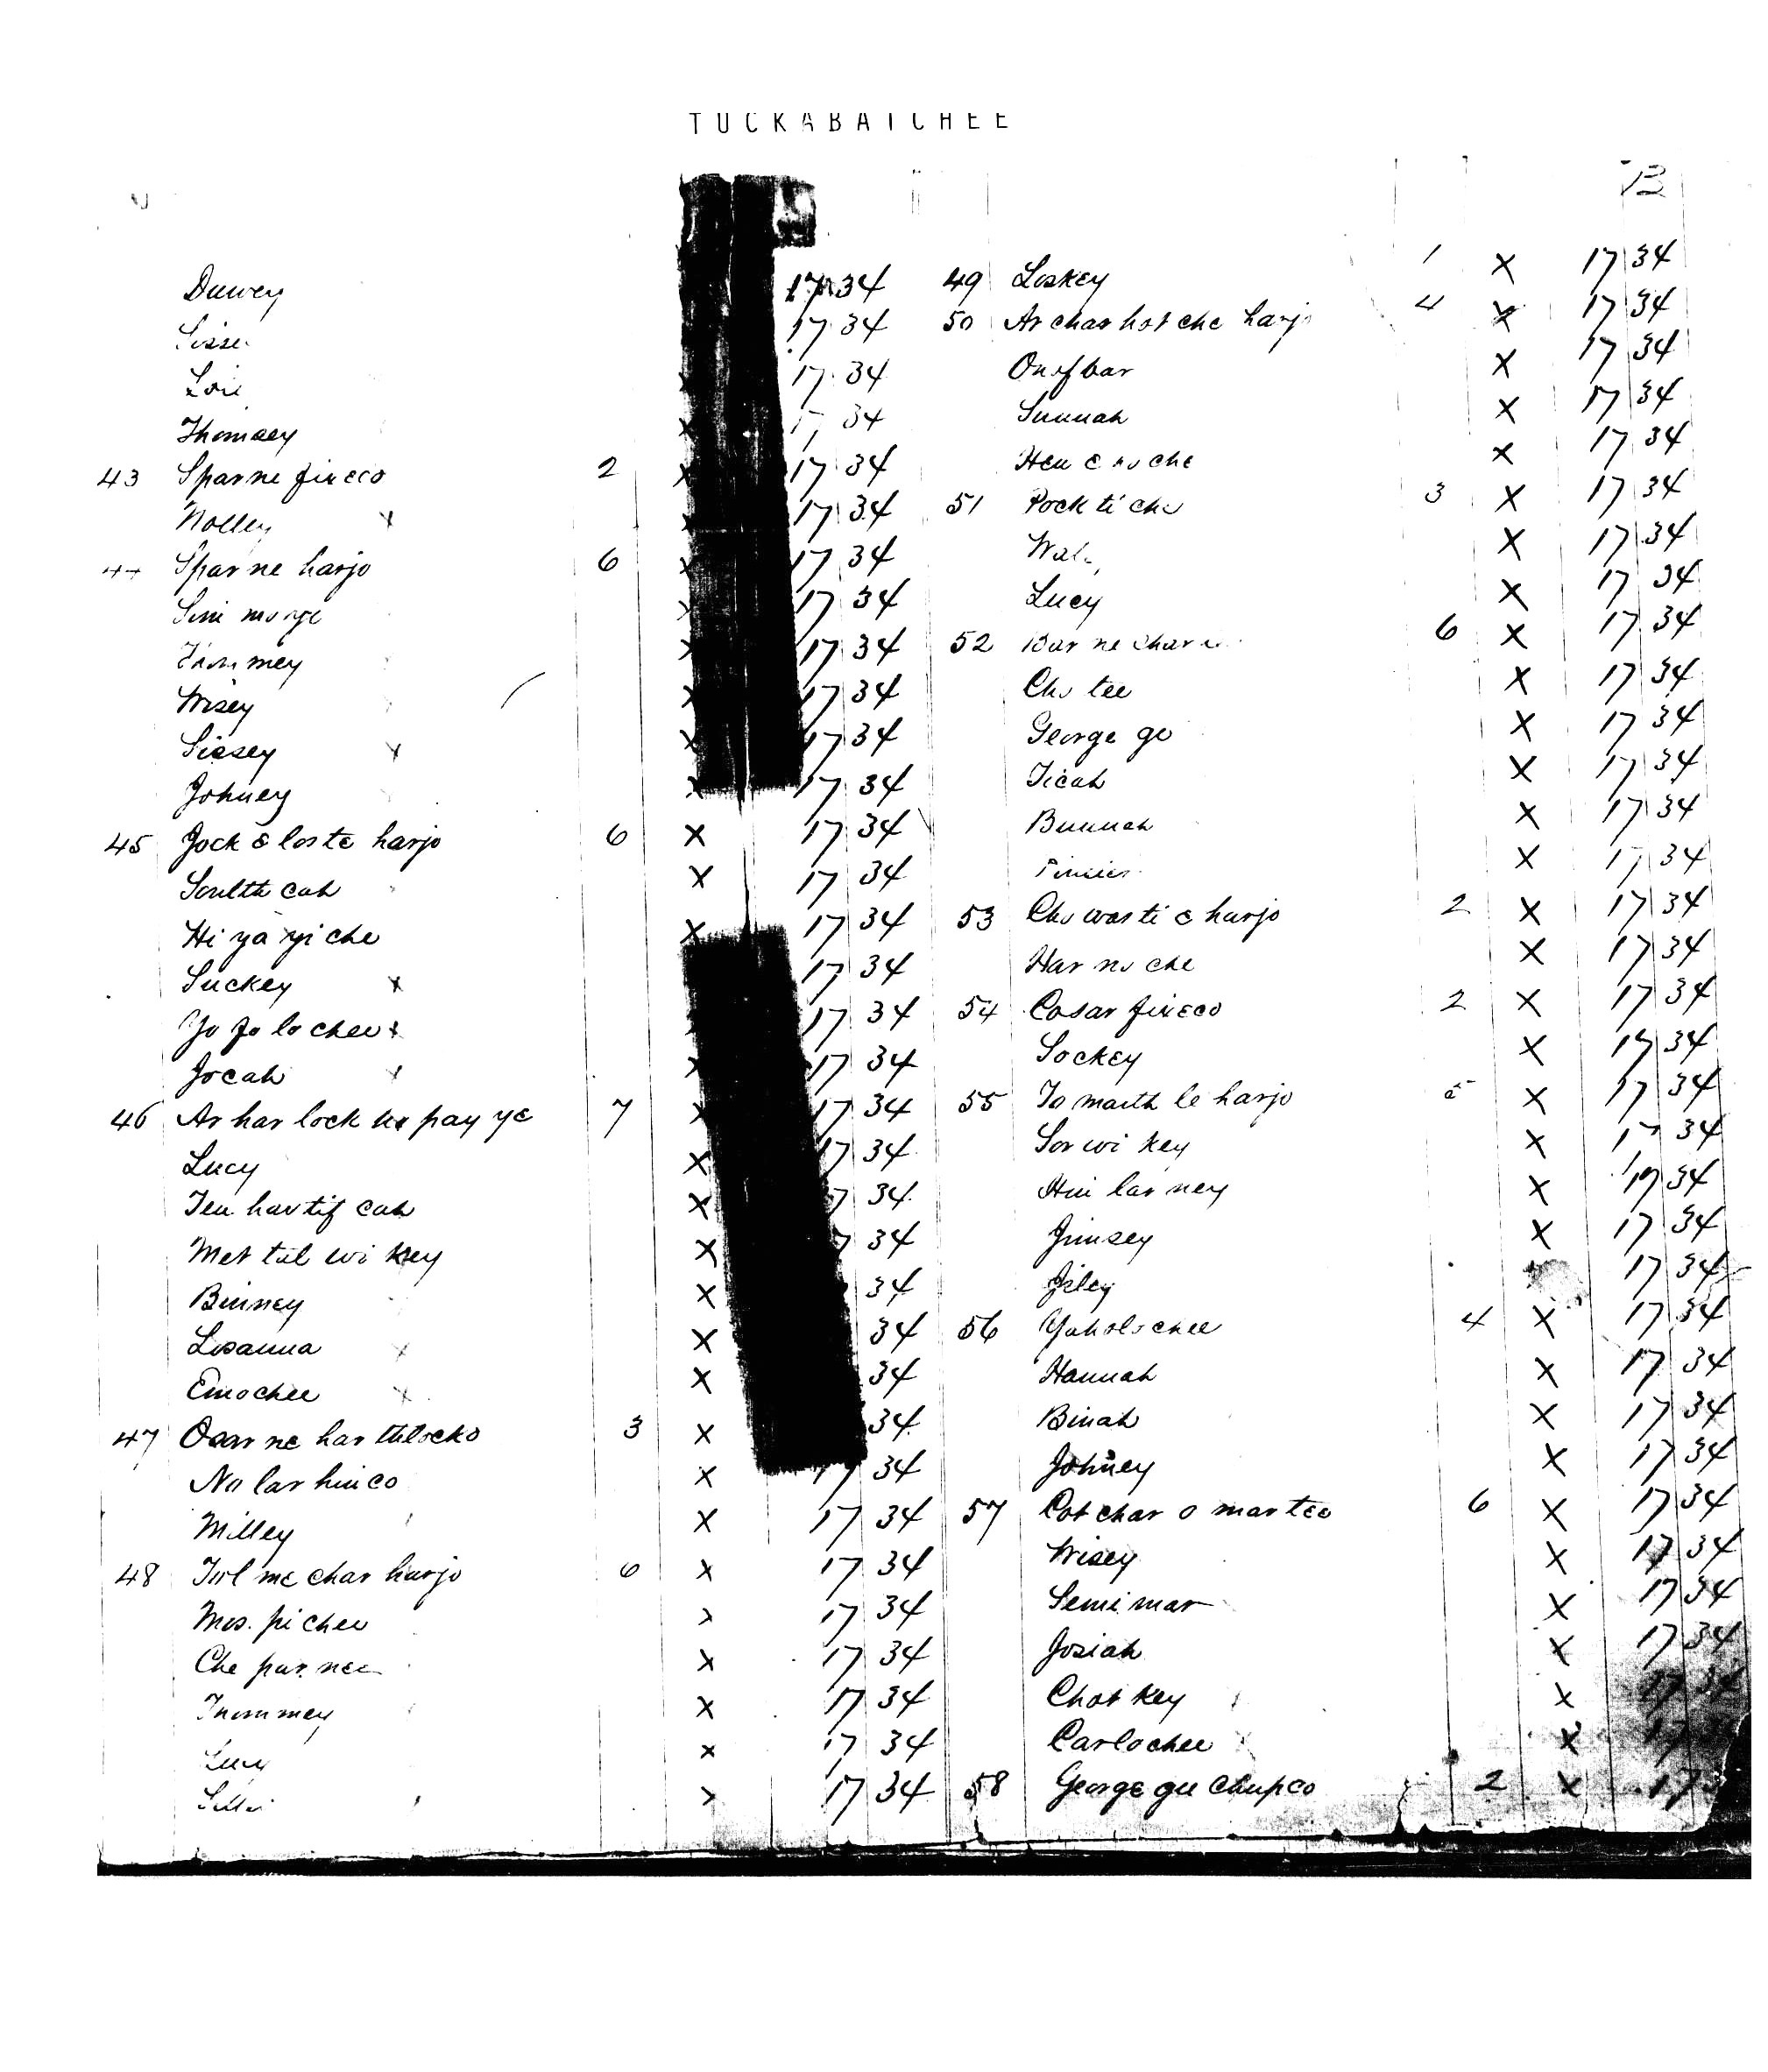 TUCKABATCHEE
Duwey 17 34
17 34
17 34
Thomsey 34
43 Spar ne fixeco 2 17 34
Nolley x 17 34
44 Spar ne harjo 6 17 34
17 34
mey 17 34
Wisey 17 34
Siesey x 17 34
Johney 17 34
45 Jock e los te harjo 6 x 17 34
Soulth cah x 17 34
Hi ya yi che x 17 34
Suckey x 17 34
Yo fo lo chee x 17 34
Jocah x 17 34
46 Ar har lock ho pay ye 7 17 34
Lucy x 17 34
Ten har tif cah x 34
Met tul wi key x 34
Binney x 34
Losanna x x 34
Emochee x x 34
47 Osar ne har thlocko 3 x 34
No lar hin co x 17 34
Milley x 17 34
48 Tul me char harjo 6 x 17 34
Mos pi chee 17 34
Che par nee x 17 34
Thommey x 17 34
Lucy x 17 34
17 34
49 Loskey 1 x 17 34
50 Ar char hot che harjo 4 x 17 34
x 17 34
Sunnah x 17 34
x 17 34
51 Pock ti che 3 x 17 34
x 17 34
Lucy x 17 34
52 6 x 17 34
Cho tee x 17 34
George ge x 17 34
Ticah x 17 34
Bunnah x 17 34
x 17 34
53 Cho was ti e harjo 2 x 17 34
Har no che x 17 34
54 Cosar fixeco 2 x 17 34
Sockey x 17 34
55 To marth le harjo x 17 34
Sor wi key x 17 34
Hin lar ney x 17 34
Jimsey x 17 34
Jiley 17 34
56 Yaholochee 4 x 17 34
Hannah x 17 34
Binah x 17 34
Johney x 17 34
57 Cot char o mar tee 6 x 17 34
Wisey x 17 34
Semi mar x 17 34
Josiah x 17 34
Chot key x 17 34
Carlochee x 17
58 George gee Chupco 2 x 17